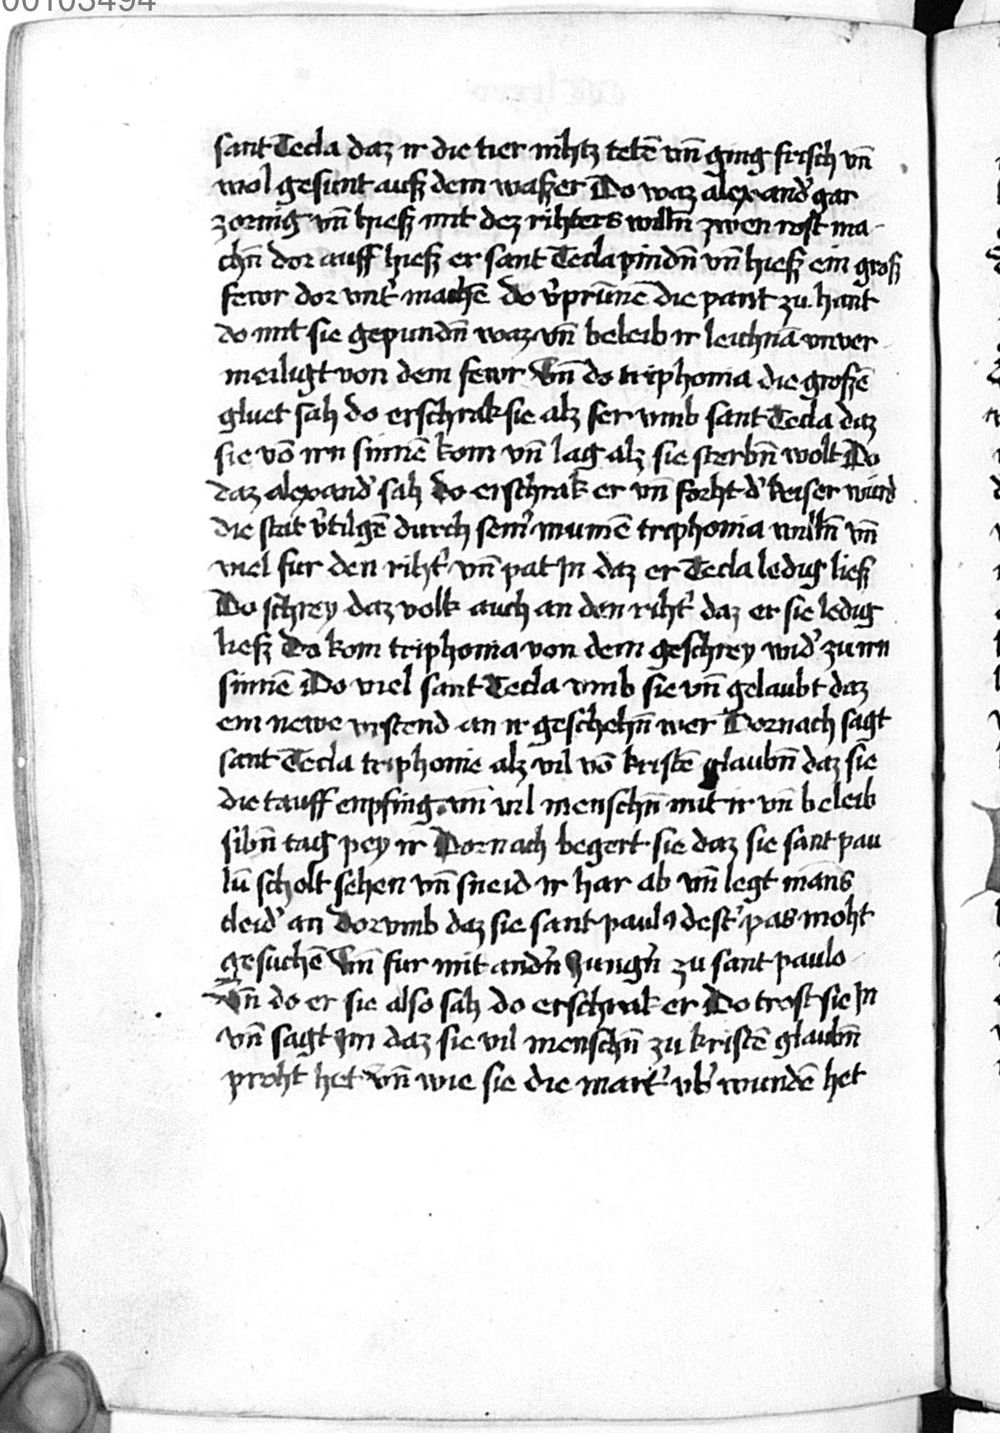 00103494
sant Tecla daz ir die tier nihtz tetē vn̄ ging frisch vn̄
wol gesunt auß dem waßer Do waz alexand' gar
zornig vn̄ hieß mit dez rihters willn̄ zwen rost ma-
chn̄ dor auff hieß er sant Tecla pindn̄ vn̄ hieß ein groß
fewr dor vnt' machē do v'prūnē die pant zu hant
do mit sie gepundn̄ waz vn̄ beleib ir leichnā vnver
meiligt von dem fewr Vn̄ do triphonia die großē
gluet sah do erschrak sie alz ser vmb sant Tecla daz
sie vō irn sinnē kom vn̄ lag alz sie sterbn̄ wolt Do
daz alexand' sah do erschrak er vn̄ forht d' keiser würd
die stat v'tilgē durch sein' mumē triphonia willn̄ vn̄
viel fur den riht' vn̄ pat Jn daz er Tecla ledig ließ
Do schrey daz volk auch an den riht' daz er sie ledig
ließ Do kom triphonia von dem geschrey wid' zu irn
sinnē Do viel sant Tecla vmb sie vn̄ gelaubt daz
ein newe vrstend an ir geschehn̄ wer Dornach sagt
sant Tecla triphonie alz vil vō kristē glaubn̄ daz sie
die tauff enpfing vn̄ vil menschn̄ mit ir vn̄ beleib
sibn̄ tag pey ir Dornach begert sie daz sie sant pau
lū scholt sehen vn̄ sneid ir har ab vn̄ legt mans
cleid' an dor vmb daz sie sant paulꝰ dest' pas moht
gesuchē Vn̄ fur mit andn̄ Jungn̄ zu sant paulo
Vn̄ do er sie also sah do erschrak er Do trost sie Jn
vn̄ sagt Jm daz sie vil menschn̄ zu kristē glaubn̄
proht het vn̄ wie sie die mart' vb' wundē het